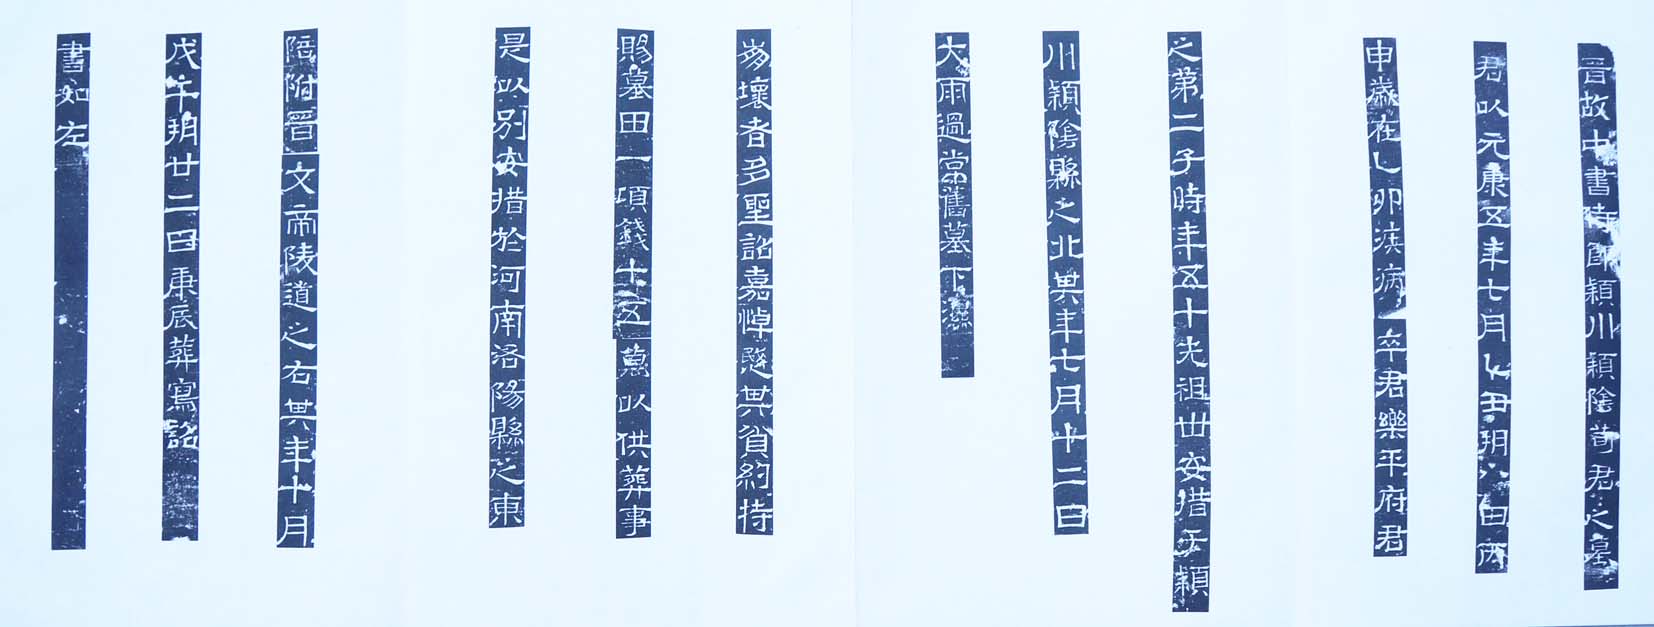 晉故中書侍郎潁川潁陰荀君之墓
君以元康五年七月乙丑朔八日丙
申歲在乙卯疾病卒君樂平府君
之第二子時年五十先祖世安措于潁
川潁陰縣之北其年七月十二日
大雨過常舊墓下濕
崩壞者多聖詔嘉悼愍其貧約特
賜墓田一頃錢十五萬以供葬事
是以別安措於河南洛陽縣之東
陪附晉文帝陵道之右其年十月
戊午朔廿二日庚辰葬寫詔
書如左